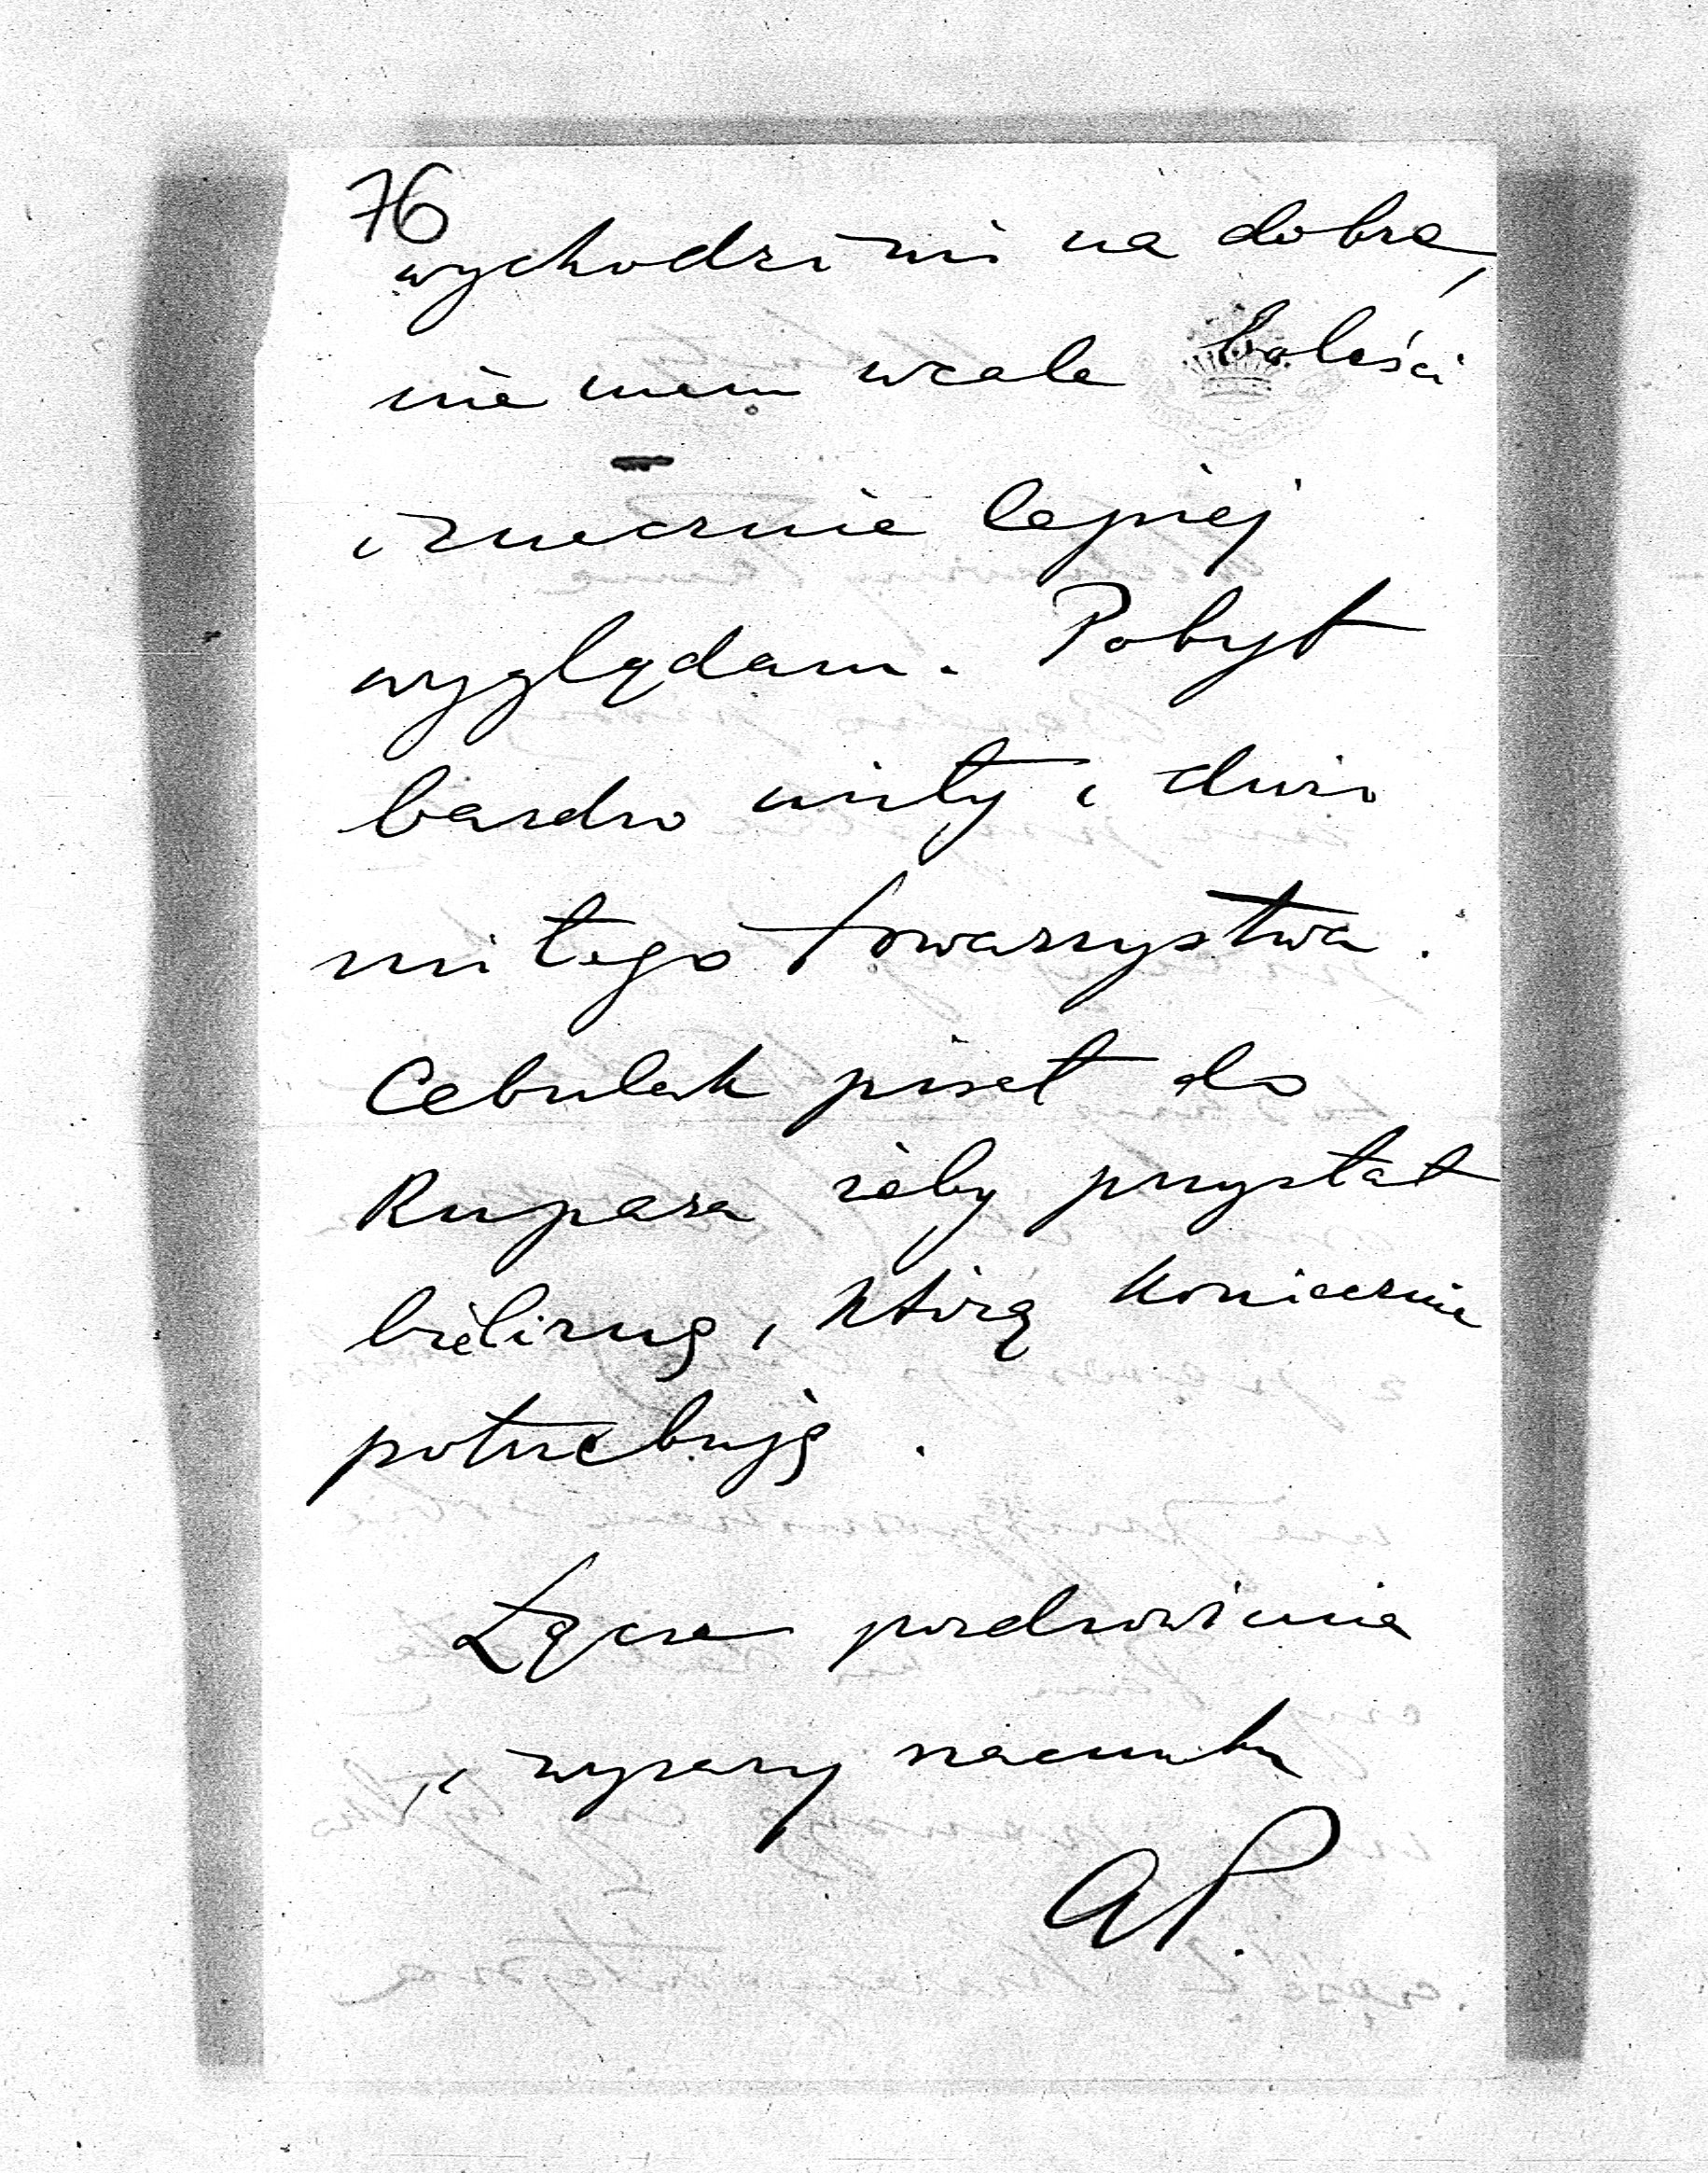 76
wychodzi mi na dobre,
nie mam wcale boleści
i znacznie lepiej
wyglądam. Pobyt
bardzo miły i dużo
miłego towarzystwa.
Cebulak pisał do
żeby przysłał
bieliznę, którą koniecznie
potrzebuję.
Łączę pozdrowienia
i wyrazy szacunku
AP.